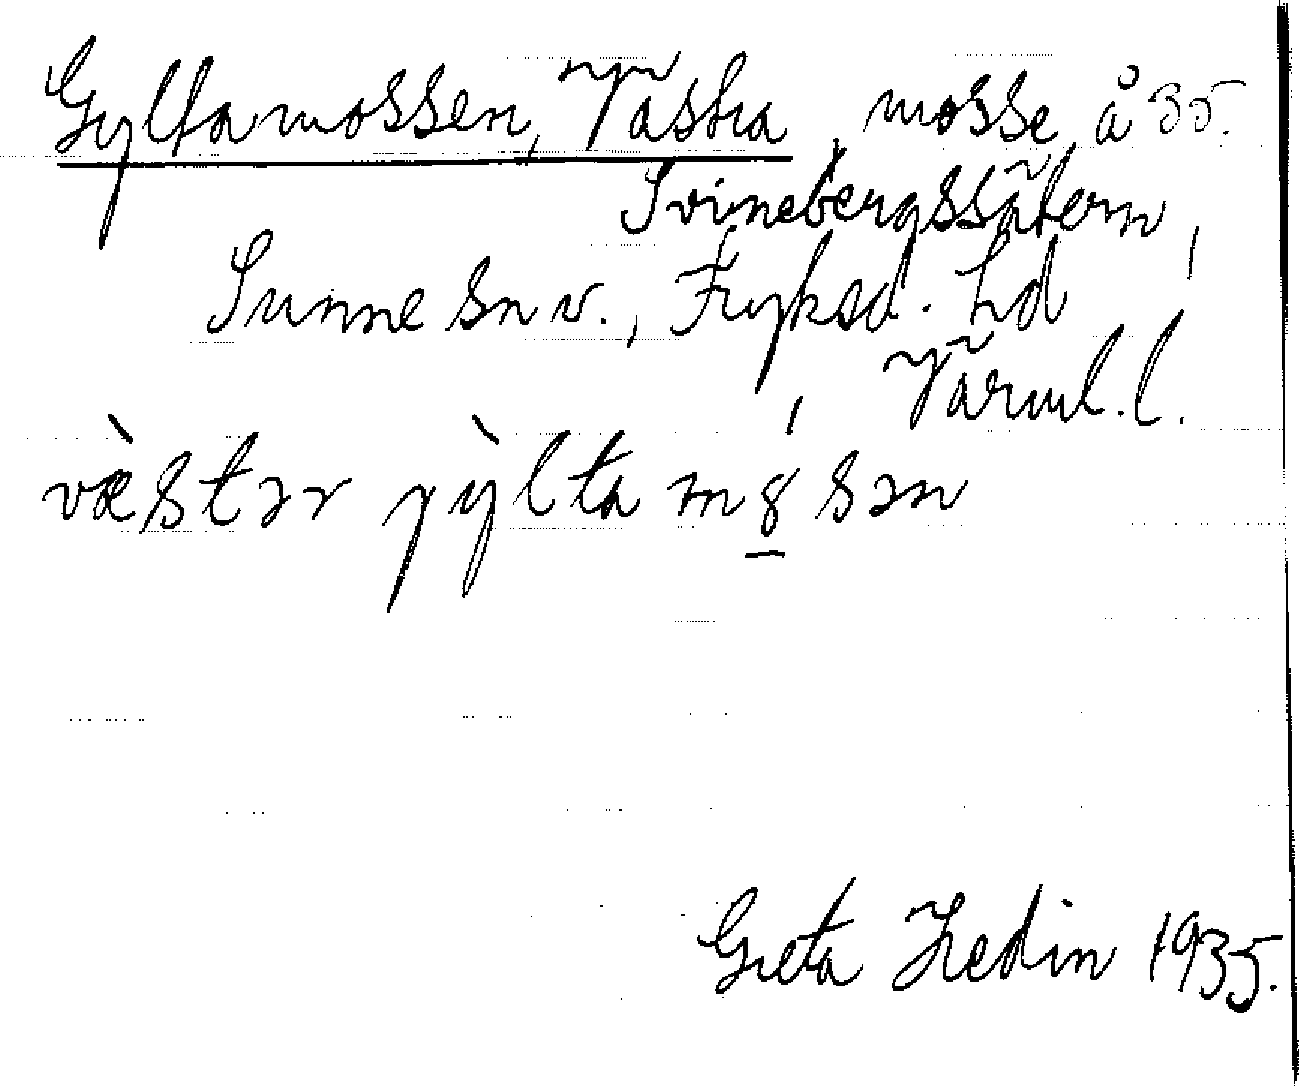 Gyltamossen, Västra, mosse å 35.
Svinebergssätern,
Sunne sn v., Fryksd. hd,
Värml. l.
væ̀stər jỳlta mo̱sən
Greta Hedin 1935.